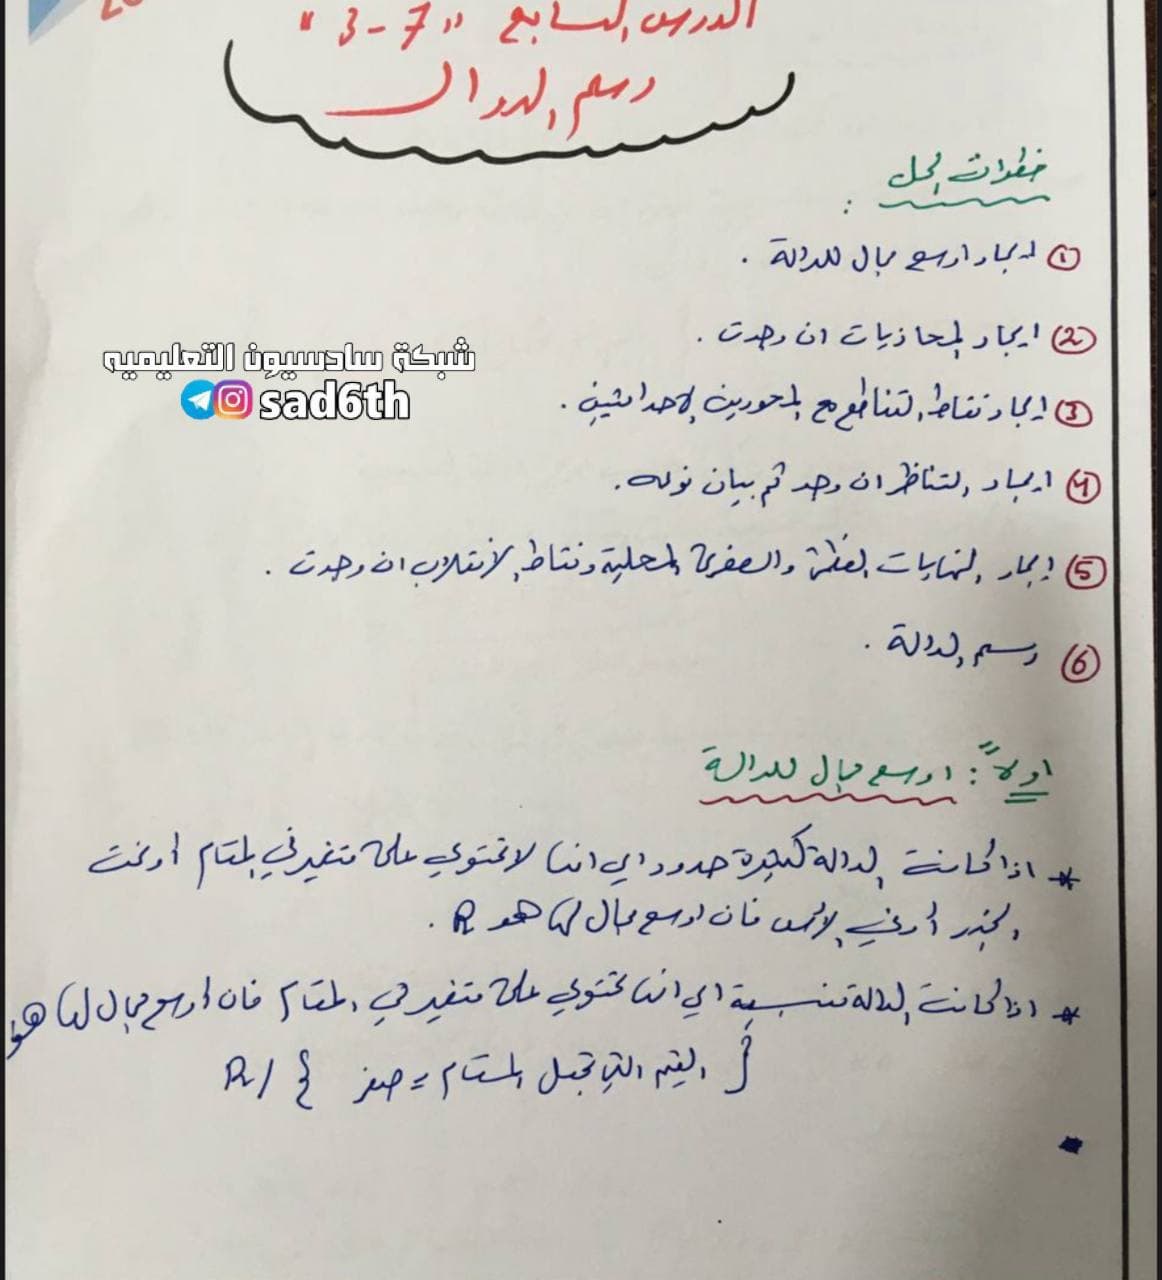 الدرس السابع "3-7"
رسم الدوال
خطوات الحل :
① ايجاد اوسع مجال للدالة .
② ايجاد المحاذيات ان وجدت .
③ ايجاد نقاط التقاطع مع المحورين الاحداثيين .
④ ايجاد التناظر ان وجد ثم بيان نوعه .
⑤ ايجاد النهايات العظمى والصغرى المحلية ونقاط الانقلاب ان وجدت .
⑥ رسم الدالة .
شبكة سادسيون التعليميه
sad6th
اولاً : اوسع مجال للدالة
* اذا كانت الدالة كثيرة حدود اي انها لا تحتوي على متغير في المقام او تحت
الجذر او في الاس فان اوسع مجال لها هو R .
* اذا كانت الدالة نسبية اي انها تحتوي على متغير في المقام فان اوسع مجال لها هو
R / { القيم التي تجعل المقام = صفر }